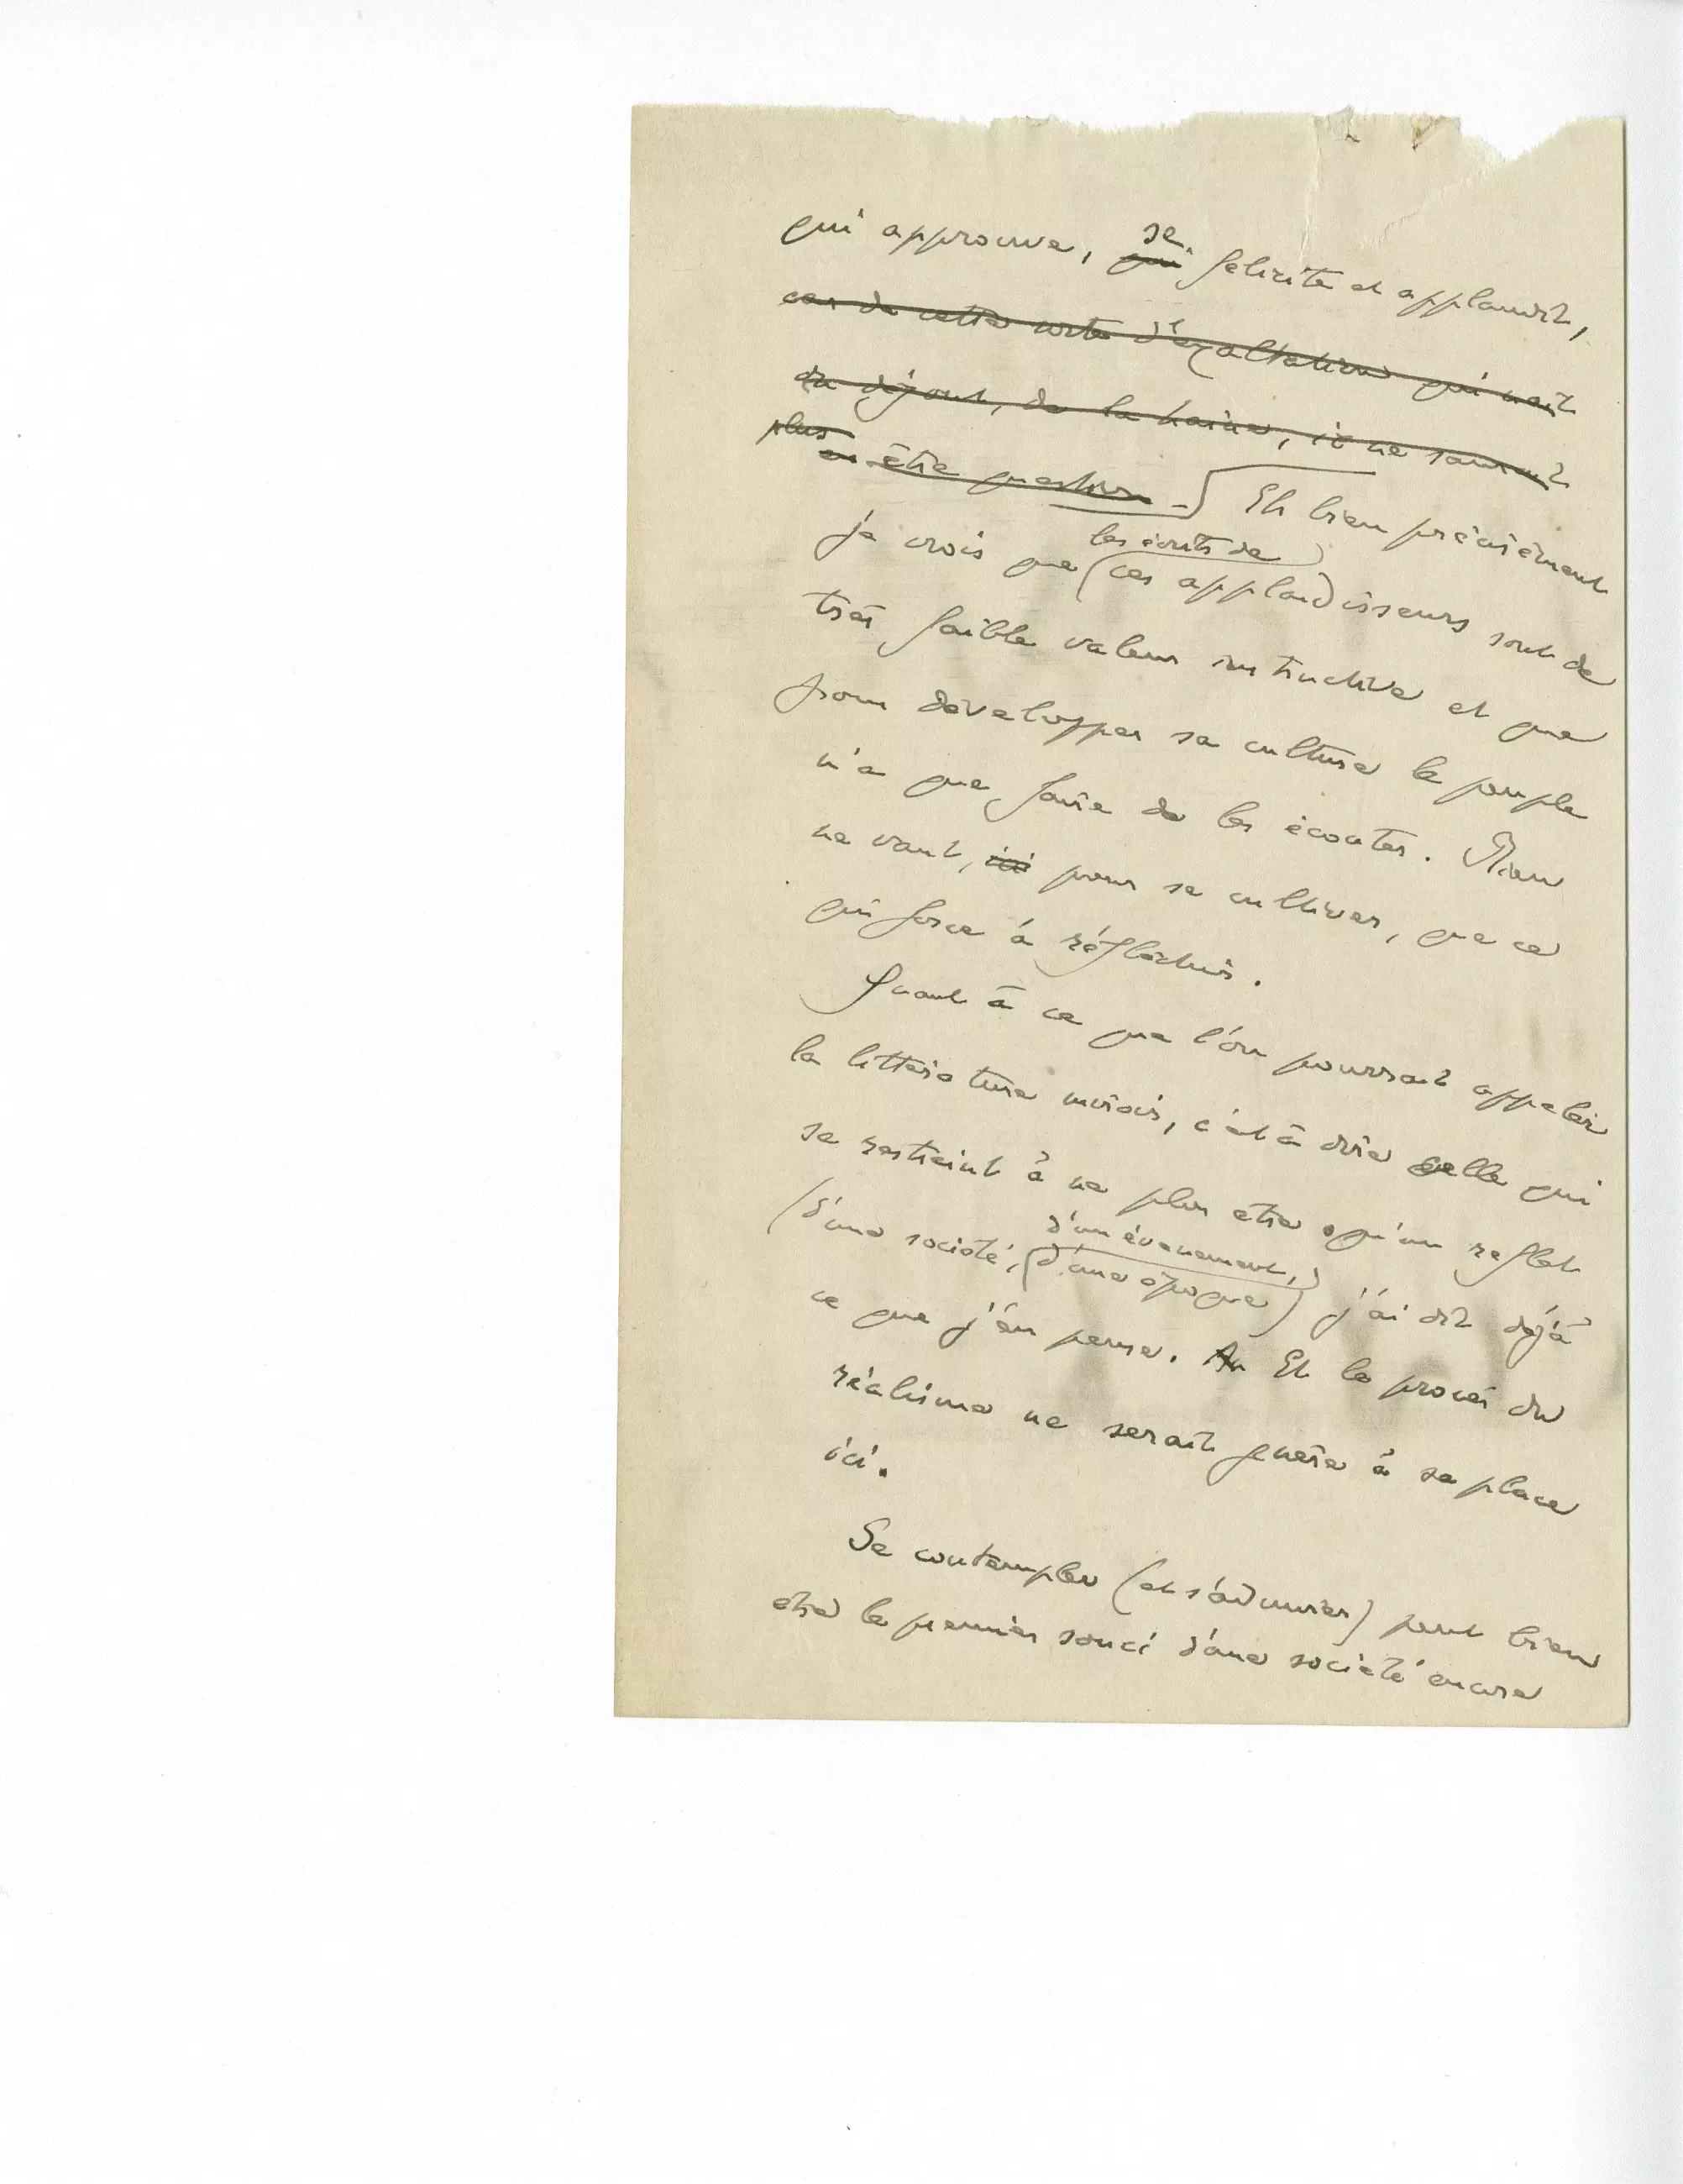 qui approuve, qui se félicite et applaudit,
car de cette sorte d'exaltation qui nait
du dégout, de la haine, il ne saurait
plus
en être question - Eh bien précisément
les écrits de
je crois que (ces applaudisseurs sont de
très faible valeur instructive et que
pour développer sa culture le peuple
n'a que faire de les écouter. Rien
ne vaut, ici pour se cultiver, que ce
qui force à réfléchir.
Quant à ce que l'on pourrait appeler
la littérature miroir, c'est à dire celle qui
se restreint à ne plus être qu'un reflet
d'un évenement,)
(d'une société, (d'une époque) j'ai dit déjà
ce que j'en pense. Au Et le procès du
réalisme ne serait guère à sa place
ici.
Se contempler (et s'admirer) peut bien
etre le premier souci d'une société encore